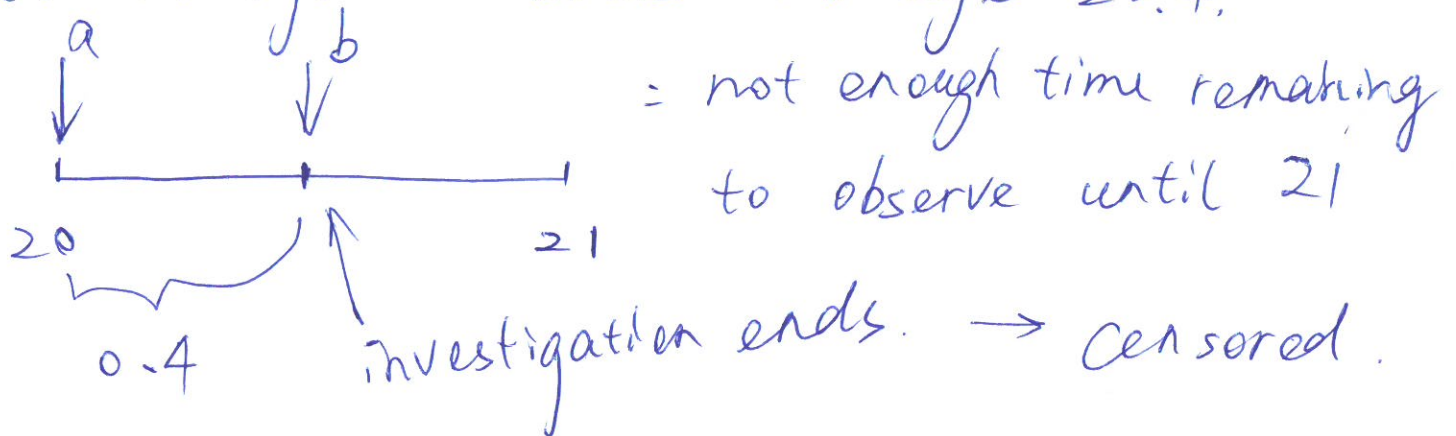 a
b
= not enough time remaining
to observe until 21
20
21
0.4
investigation ends. → censored.